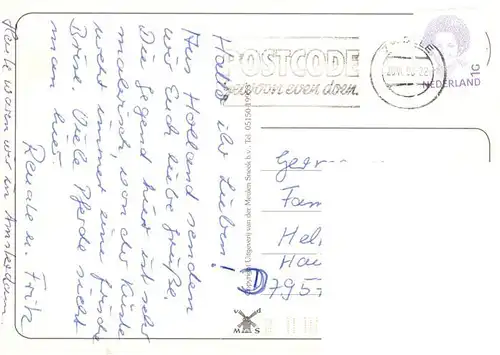 Hallo ihr Lieben!
Aus Holland senden
wir Euch liebe Grüße.
Die Gegend hier ist sehr
malerisch, von der Küste
weht immer eine frische
Brise. Viele Pferde sieht
man hier.
Renate u. Fritz
Heute waren wir in Amsterdam
POSTCODE
gewoon even doen.
ZWOLLE
NEDERLAND
1G
Uitgeverij van der Meulen Sneek b.v. Tel: 05150-
Fam
Hel
Hau
D 795
M S